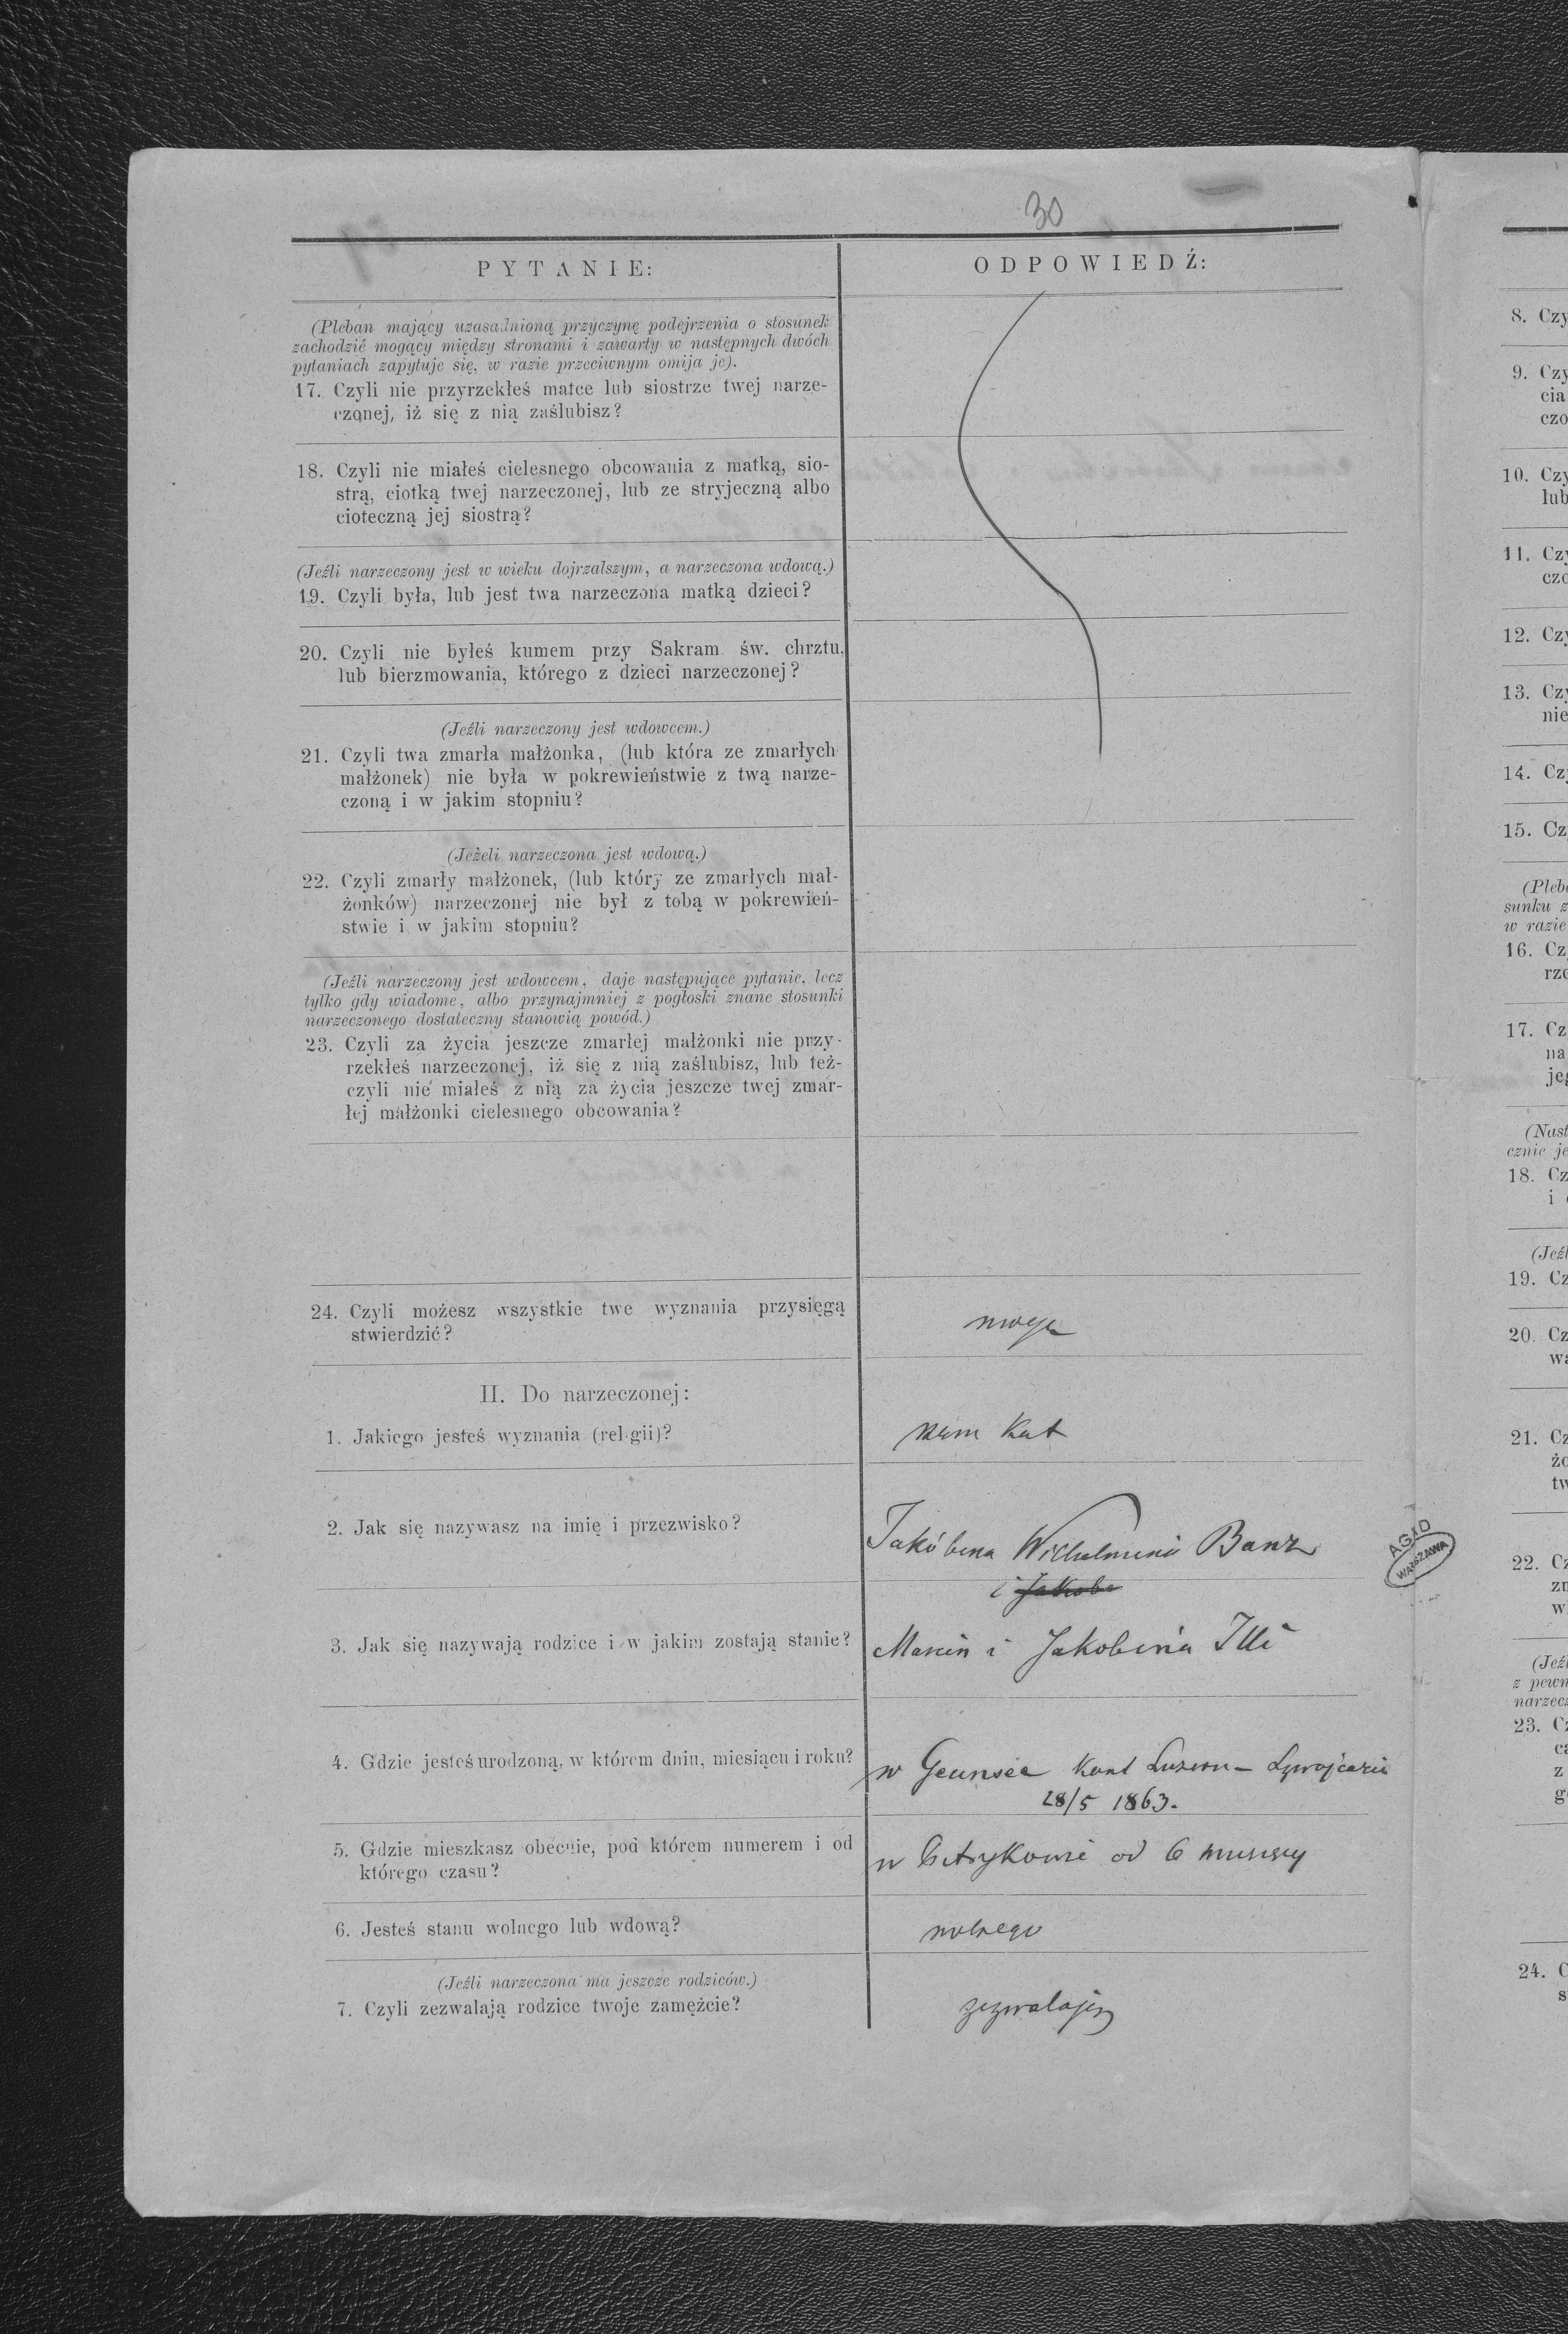 30
PYTANIE:
ODPOWIEDŹ:
(Pleban mający uzasadnioną przyczynę podejrzenia o stosunek
zachodzić mogący między stronami i zawarty w następnych dwóch
pytaniach zapytuje się, w razie przeciwnym omija je).
17. Czyli nie przyrzekłeś matce lub siostrze twej narze-
czonej, iż się z nią zaślubisz?
18. Czyli nie miałeś cielesnego obcowania z matką, sio-
strą, ciotką twej narzeczonej, lub ze stryjeczną albo
cioteczną jej siostrą?
(Jeźli narzeczony jest w wieku dojrzalszym, a narzeczona wdową.)
19. Czyli była, lub jest twa narzeczona matką dzieci?
20. Czyli nie byłeś kumem przy Sakram. św. chrztu,
lub bierzmowania, którego z dzieci narzeczonej?
(Jeźli narzeczony jest wdowcem.)
21. Czyli twa zmarła małżonka, (lub która ze zmarłych
małżonek) nie była w pokrewieństwie z twą narze-
czoną i w jakim stopniu?
(Jeżeli narzeczona jest wdową.)
22. Czyli zmarły małżonek, (lub który ze zmarłych mał-
żonków) narzeczonej nie był z tobą w pokrewień-
stwie i w jakim stopniu?
(Jeźli narzeczony jest wdowcem, daje następujące pytanie, lecz
tylko gdy wiadome, albo przynajmniej z pogłoski znane stosunki
narzeczonego dostateczny stanowią powód.)
23. Czyli za życia jeszcze zmarłej małżonki nie przy-
rzekłeś narzeczonej, iż się z nią zaślubisz, lub też
czyli nie miałeś z nią za życia jeszcze twej zmar-
łej małżonki cielesnego obcowania?
24. Czyli możesz wszystkie twe wyznania przysięgą
stwierdzić?
mogę
II. Do narzeczonej:
1. Jakiego jesteś wyznania (rel gii)?
rzym kat
2. Jak się nazywasz na imię i przezwisko?
Jakóbina Wilhelmina Banz
i Jakobe
3. Jak się nazywają rodzice i w jakim zostają stanie?
Marcin i Jakobina Illi
4. Gdzie jesteś urodzoną, w którem dniu, miesiącu i roku?
w Geunsee Kant Luzern – Szwajcaria
28/5 1863.
5. Gdzie mieszkasz obecnie, pod którem numerem i od
którego czasu?
w od 6 miesięcy
6. Jesteś stanu wolnego lub wdową?
wolnego
(Jeźli narzeczona ma jeszcze rodziców.)
7. Czyli zezwalają rodzice twoje zamężcie?
zezwalają
AGAD
WARSZAWA
8. Czy
9. Czy
cia
czo
10. Czy
lub
11. Czy
czo
12. Czy
13. Czy
nie
14. Czy
15. Cz
(Pleba
sunku z
w razie
16. Cz
rzo
17. Cz
na
jeg
(Nast
cznie je
18. Cz
i
(Jeźl
19. Cz
20. Cz
wa
21. Cz
żo
tw
22. Cz
zn
w
(Jeźl
z pewn
narzecz
23. Cz
ca
z
g
24. C
s